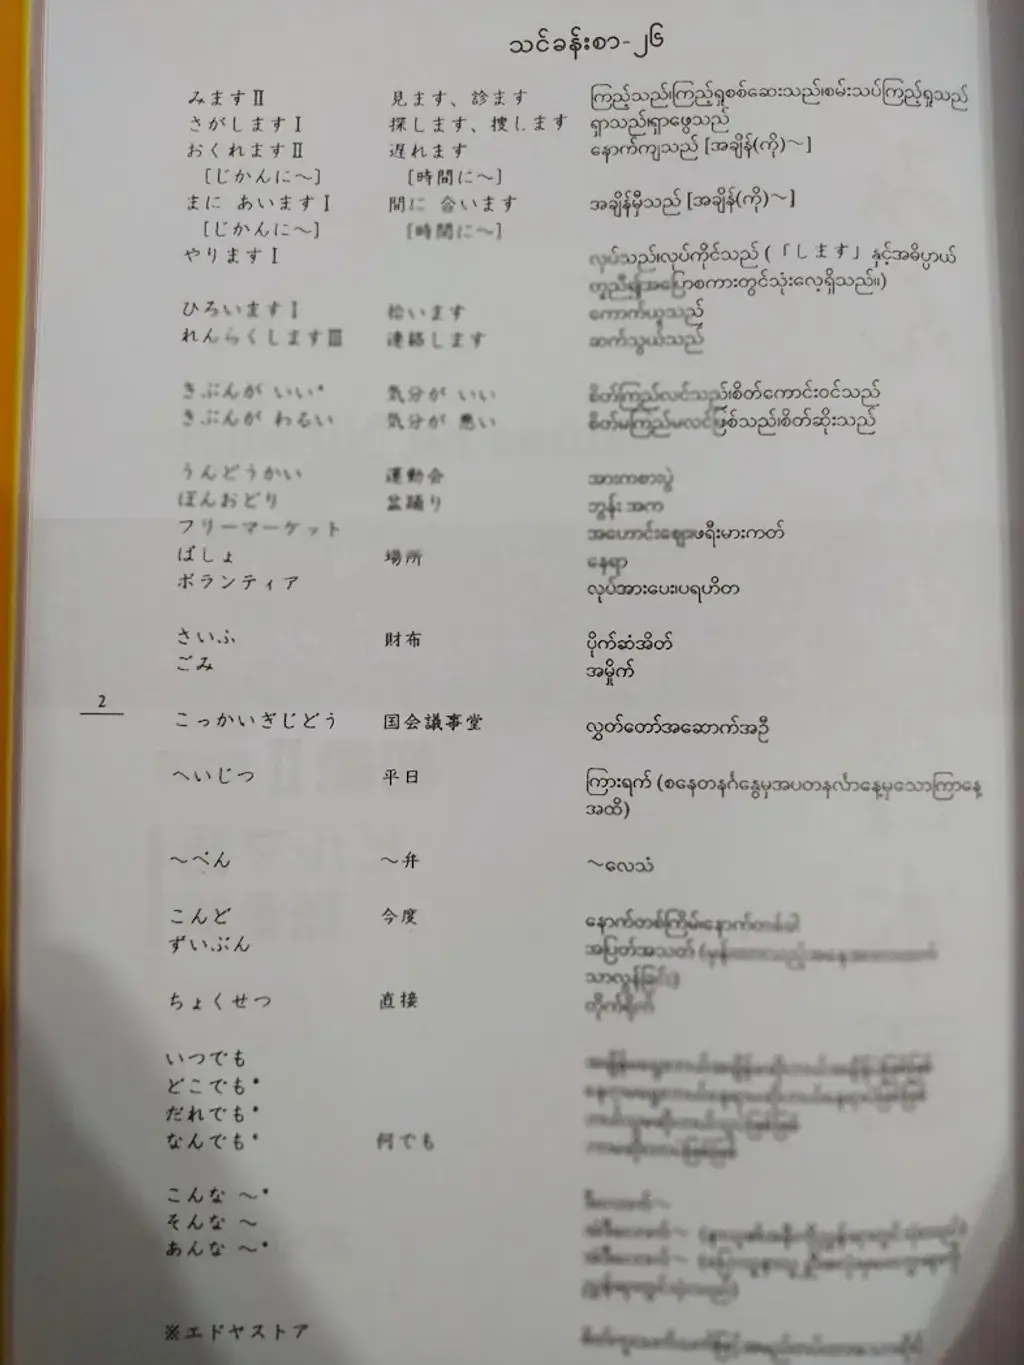 သင်ခန်းစာ-၂၆
みますⅡ 見ます、診ます ကြည့်သည်၊ကြည့်ရှုစစ်ဆေးသည်၊စမ်းသပ်ကြည့်ရှုသည်
さがしますⅠ 探します、捜します ရှာသည်၊ရှာဖွေသည်
おくれますⅡ 遅れます နောက်ကျသည် [အချိန်(ကို)～]
[じかんに～] [時間に～]
まに あいますⅠ 間に 合います အချိန်မှီသည် [အချိန်(ကို)～]
[じかんに～] [時間に～]
やりますⅠ လုပ်သည်၊လုပ်ကိုင်သည် (「します」နှင့်အဓိပ္ပာယ်
တူညီ၍အပြောစကားတွင်သုံးလေ့ရှိသည်။)
ひろいますⅠ 拾います ကောက်ယူသည်
れんらくしますⅢ 連絡します ဆက်သွယ်သည်
きぶんが いい* 気分が いい စိတ်ကြည်လင်သည်၊စိတ်ကောင်းဝင်သည်
きぶんが わるい 気分が 悪い စိတ်မကြည်မလင်ဖြစ်သည်၊စိတ်ဆိုးသည်
うんどうかい 運動会 အားကစားပွဲ
ぼんおどり 盆踊り ဘွန်း အက
フリーマーケット အဟောင်းဈေး၊ဖရီးမားကတ်
ばしょ 場所 နေရာ
ボランティア လုပ်အားပေး၊ပရဟိတ
さいふ 財布 ပိုက်ဆံအိတ်
ごみ အမှိုက်
2
こっかいぎじどう 国会議事堂 လွှတ်တော်အဆောက်အဦ
へいじつ 平日 ကြားရက် (စနေတနင်္ဂနွေမှအပတနင်္လာနေ့မှသောကြာနေ့
အထိ)
～べん ～弁 ～လေသံ
こんど 今度 နောက်တစ်ကြိမ်၊နောက်တစ်ခါ
ずいぶん အပြတ်အသတ်
ちょくせつ 直接 တိုက်ရိုက်
いつでも
どこでも*
だれでも*
なんでも* 何でも
こんな ～*
そんな ～
あんな ～*
※エドヤストア